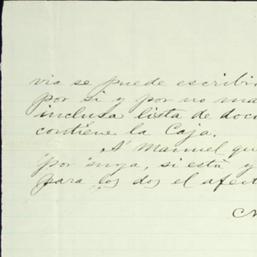 via se puede escribir
por si y por no ma
inclusa lista de doc
contiene la Caja.
A Manuel qu
por suya, si está y
para los dos el afect